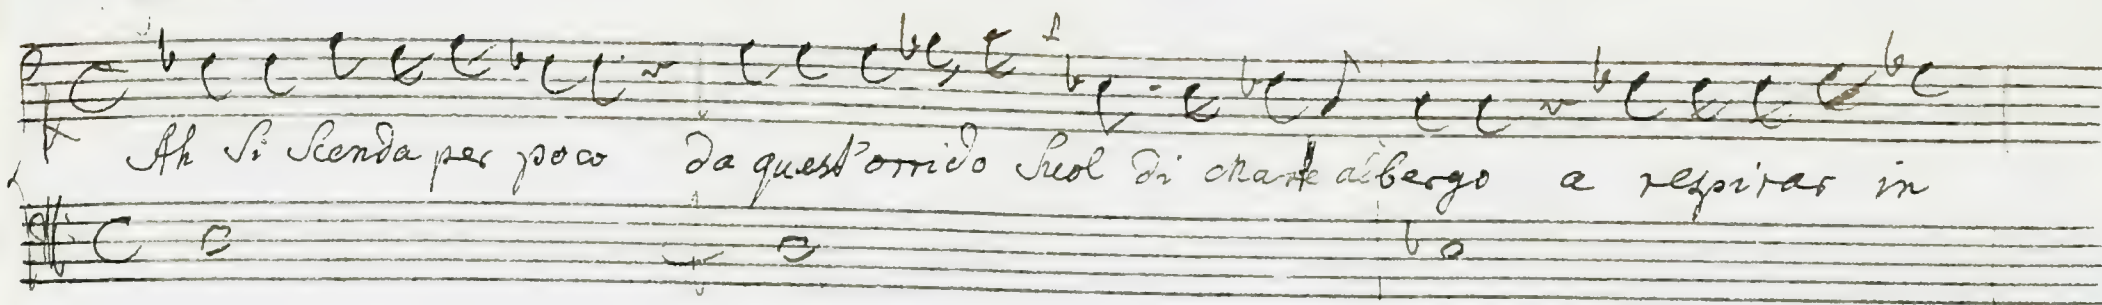 Ah Si Scenda per poco da quest'orrido Suol di Marte albergo a respirar in